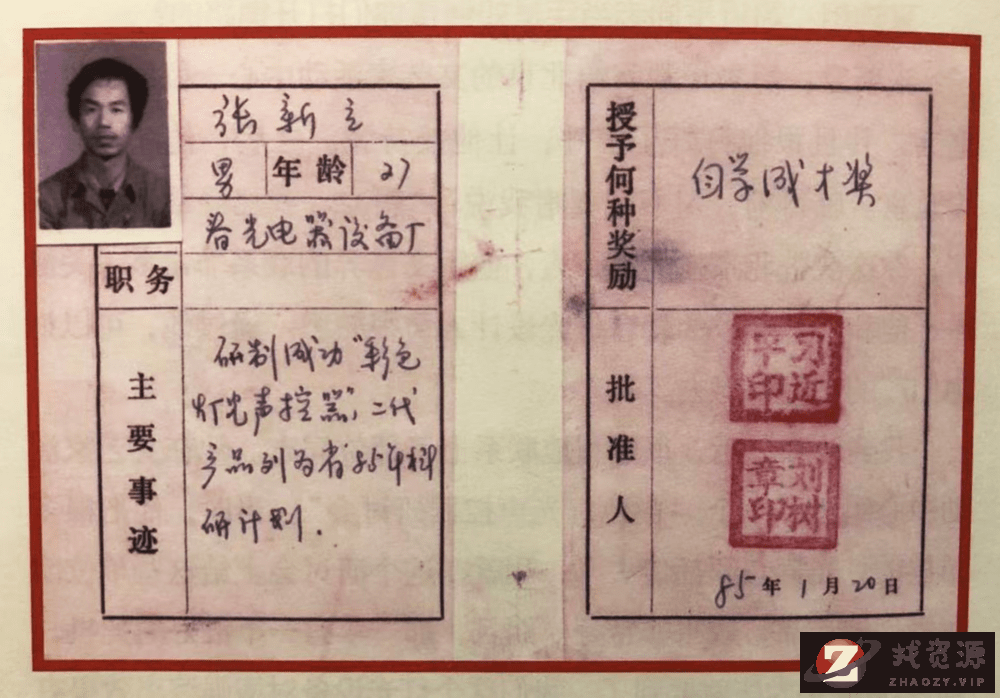 张新立
男 年龄 27
春光电器设备厂
职务
主要事迹
研制成功“彩色
灯光声控器”,二代
产品列为省85年科
研计划.
授予何种奖励
自学成才奖
批准人
习近平印
刘树章印
85年1月20日
找资源
ZHAOZY.VIP